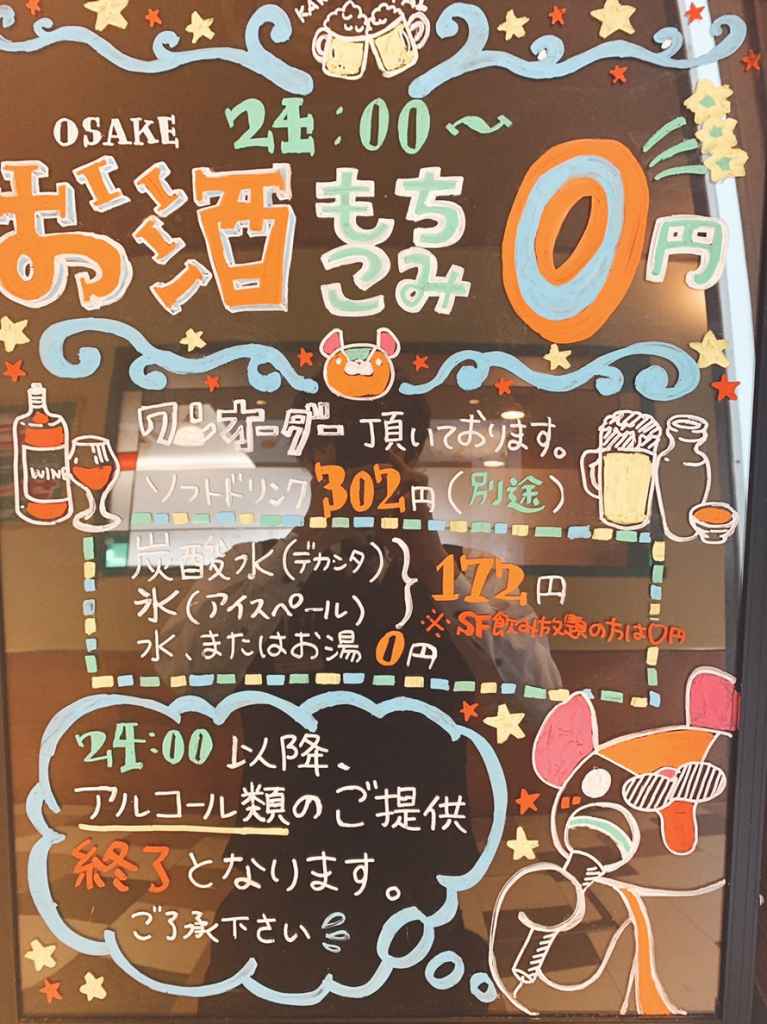 OSAKE
24:00〜
お酒もちこみ0円
ワンオーダー頂いております。
ソフトドリンク302円(別途)
WINE
炭酸水(デカンタ)
氷(アイスペール)
172円
※SF飲み放題の方は0円
水、またはお湯0円
24:00以降、
アルコール類のご提供
終了となります。
ご了承下さい